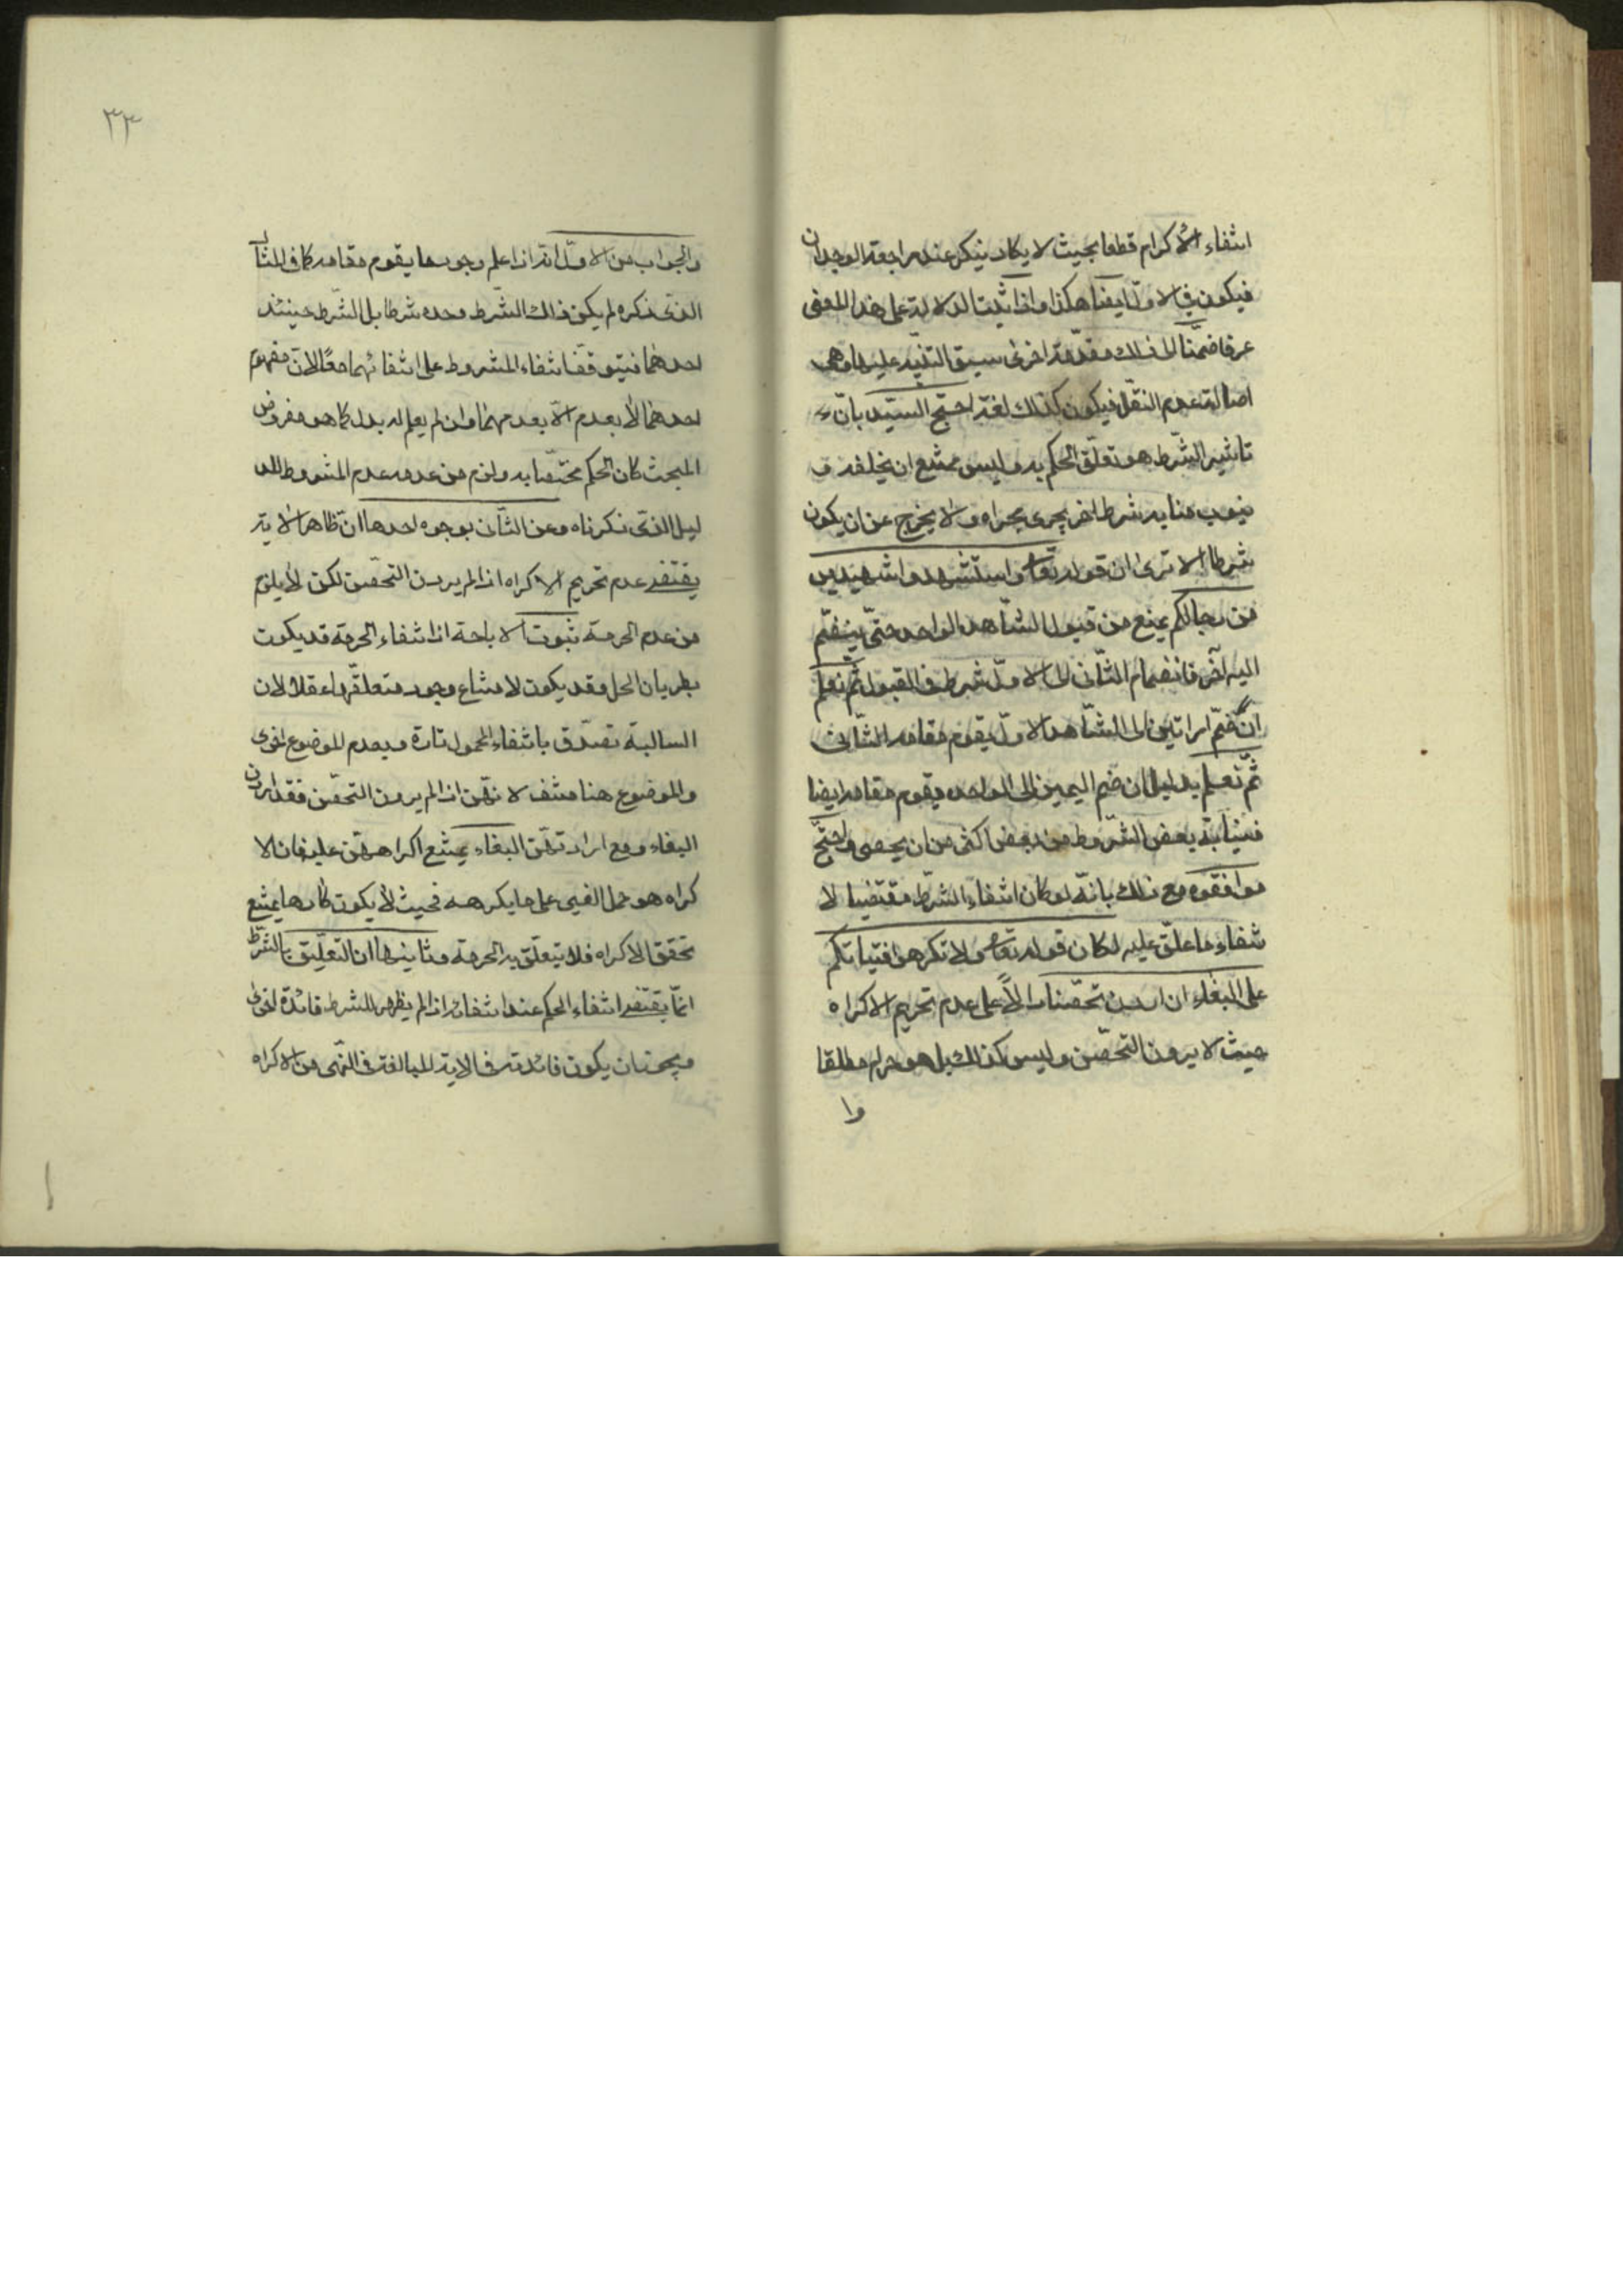 انتفاء الاكرام قطعا بحيث لا يكاد ينكر عند مراجعة الوجدان
فيكون في الاول ايضا هكذا واذا ثبت الدلالة على هذا المعنى
عرفا ضممنا الى ذلك مقدمة اخرى سبق التنبيه عليها وهى
اصالة عدم النقل فيكون كذلك لغة احتج السيد بانّ
تاثير الشرط هو تعلق الحكم به وليس يمتنع ان يخلفه و
ينوب منابه شرط اخر يجرى مجراه ولا يخرج عن ان يكون
شرطا الا ترى ان قوله تعا واستشهدوا شهيدين
من رجالكم يمنع من قبول الشاهد الواحد حتى ينضم
اليه آخر فانضمام الثانى الى الاول شرط فى القبول ثم نعلم
ان ضم امراتين الى الشاهد الاول يقوم مقام الثانى
ثم نعلم بدليل ان ضم اليمين الى الواحد يقوم مقامه ايضا
فنيابة بعض الشروط عن بعض اكثر من ان يحصى واحتج
موافقوه مع ذلك بانه لو كان انتفاء الشرط مقتضيا لا
نتفاء ما علق عليه لكان قوله تعا ولا تكرهوا فتياتكم
على البغاء ان اردن تحصنا دالا على عدم تحريم الاكراه
حيث لا يردن التحصن وليس كذلك بل هو حرام مطلقا
وا
٣٣
والجواب عن الاول انه اذا علم وجود ما يقوم مقامه كما فى المثال
الذى ذكره لم يكن ذلك الشرط وحده شرطا بل الشرط حينئذ
احدهما فيتوقف انتفاء المشروط على انتفائهما معا لان مفهوم
احدهما لا يعدم الا بعدمهما وان لم يعلم له بدل كما هو مفروض
المبحث كان الحكم مختصا به ولزم من عدمه عدم المشروط للد
ليل الذى ذكرناه وعن الثانى بوجوه احدها ان ظاهر الاية
يقتضى عدم تحريم الاكراه اذا لم يردن التحصن لكن لا يلزم
من عدم الحرمة ثبوت الاباحة اذ انتفاء الحرمة قد يكون
بطريان الحل وقد يكون لامتناع وجود متعلقها عقلا لان
السالبة تصدق بانتفاء المحمول تارة وبعدم الموضوع اخرى
والموضوع هنا منتف لانهن اذا لم يردن التحصن فقد اردن
البغاء ومع ارادتهن البغاء يمتنع اكراههن عليه فان الا
كراه هو حمل الغير على ما يكرهه فحيث لا يكون كارها يمتنع
تحقق الاكراه فلا يتعلق به الحرمة وثانيها ان التعليق بالشرط
انما يقتضى انتفاء الحكم عند انتفائه اذا لم يظهر للشرط فائدة اخرى
ويجوز ان يكون فائدته فى الاية للمبالغة فى النهى عن الاكراه